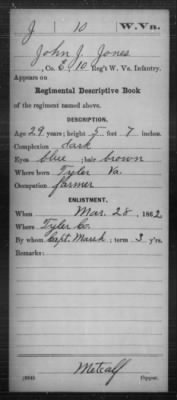 J 10 W.Va.
John J. Jones
, Co. E, 10 Reg't W. Va. Infantry.
Appears on
Regimental Descriptive Book
of the regiment named above.
DESCRIPTION.
Age 29 years; height 5 feet 7 inches.
Complexion Dark
Eyes blue; hair brown
Where born Tyler Va.
Occupation farmer
ENLISTMENT.
When Mar. 28, 1862
Where Tyler Co.
By whom Capt. Marsh; term 3 y'rs.
Remarks:
Metcalf
Copyist.